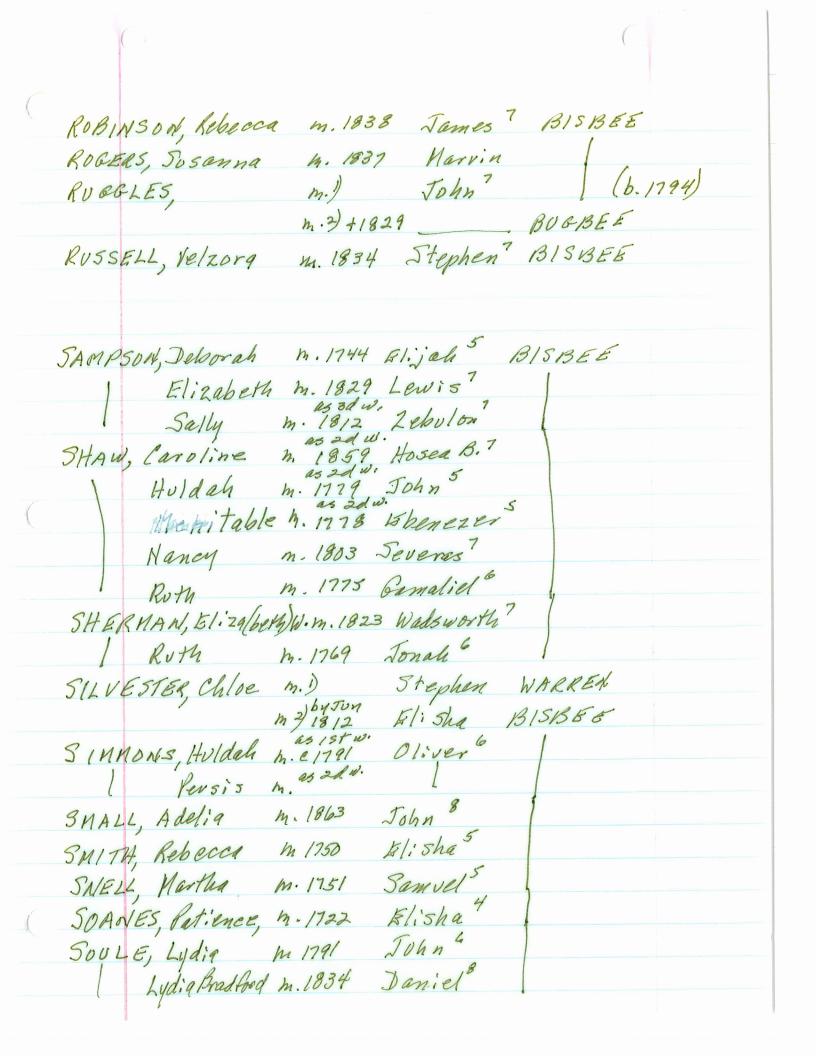 ROBINSON, Rebecca m. 1838 James 7 BISBEE
ROGERS, Susanna m. 1837 Marvin
RUGGLES, m. 1) John 7 (b. 1794)
m. 2) +1829 BUGBEE
RUSSELL, Velzora m. 1834 Stephen 7 BISBEE
SAMPSON, Deborah m. 1744 Elijah 5 BISBEE
Elizabeth m. 1829 Lewis 7
as 3d w.
Sally m. 1812 Zebulon 7
as 2d w.
SHAW, Caroline m 1859 Hosea B. 7
as 2d w.
Huldah m. 1779 John 5
as 2d w.
Mehitable m. 1778 Ebenezer 5
Nancy m. 1803 Severes 7
Ruth m. 1775 Gamaliel 6
SHERMAN, Eliza(beth) W. m. 1823 Wadsworth 7
Ruth m. 1769 Jonah 6
SILVESTER, Chloe m. 1) Stephen WARREN
by Jun
m 2) 1812 Elisha BISBEE
as 1st w.
SIMMONS, Huldah m. c 1791 Oliver 6
as 2d w.
Persis m.
SMALL, Adelia m. 1863 John 8
SMITH, Rebecca m 1750 Elisha 5
SNELL, Martha m. 1751 Samuel 5
SOANES, Patience, m. 1722 Elisha 4
SOULE, Lydia m 1791 John 6
Lydia Bradford m. 1834 Daniel 8